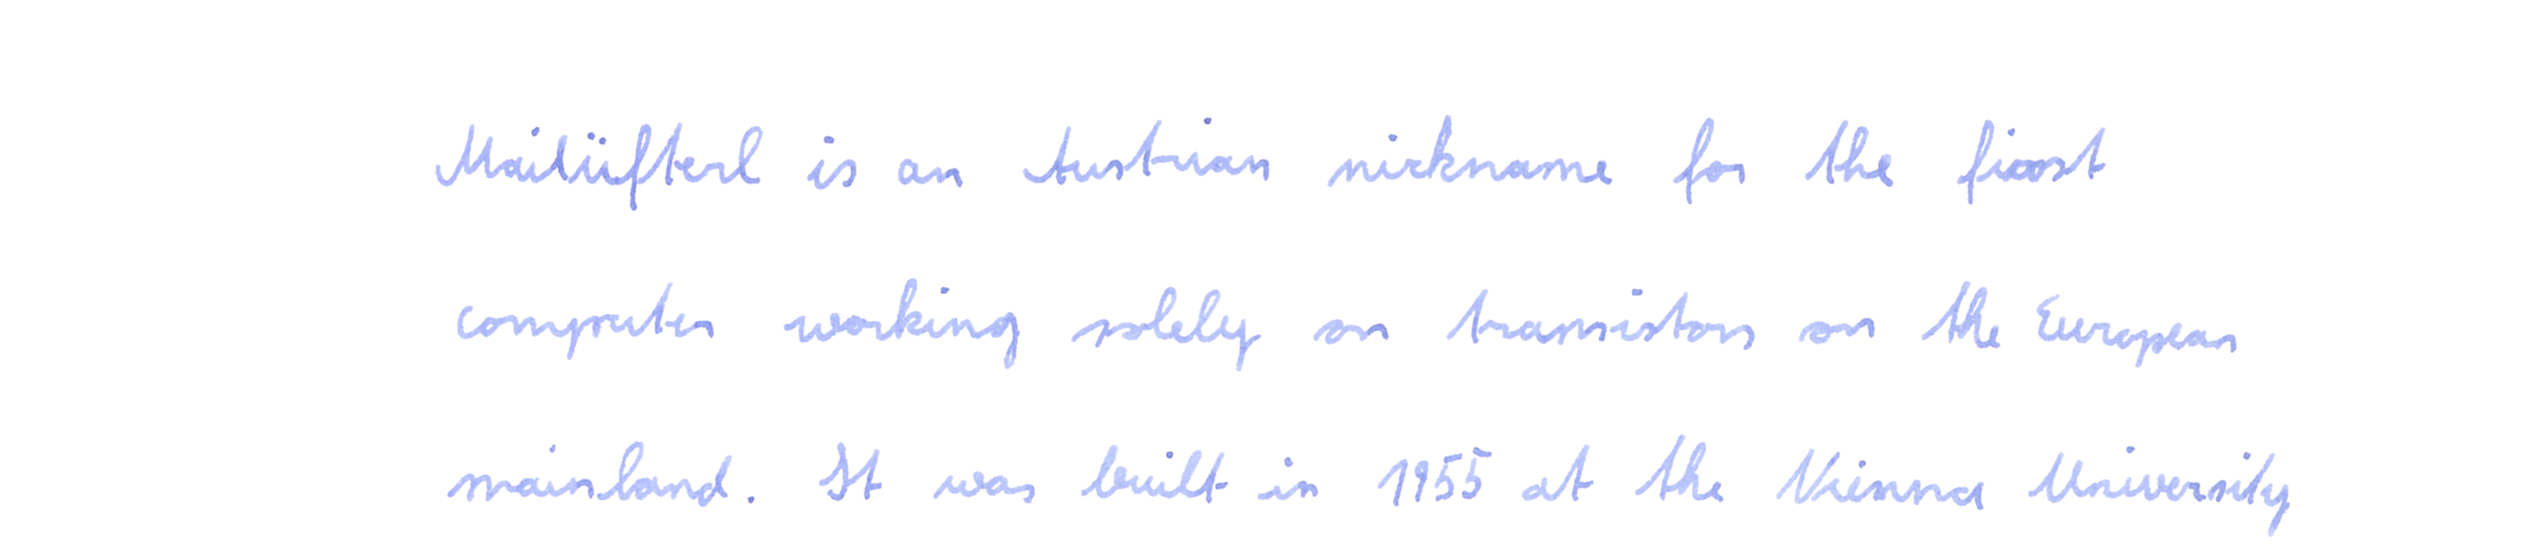 Mailüfterl is an Austrian nickname for the first
computer working solely on transistors on the European
mainland. It was built in 1955 at the Vienna University